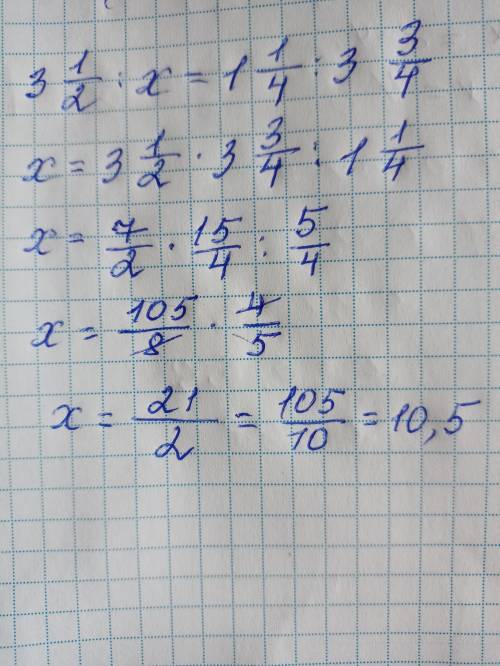 3 1/2 : x = 1 1/4 : 3 3/4
x = 3 1/2 · 3 3/4 : 1 1/4
x = 7/2 · 15/4 : 5/4
x = 105/8 · 4/5
x = 21/2 = 105/10 = 10,5